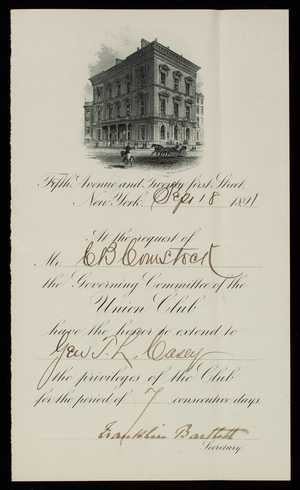 Fifth Avenue and Twenty first Street.
New York, Sept 18 1891
At the request of
Mr. C B Comstock
the Governing Committee of the
Union Club
have the honor to extend to
Gen T. L. Casey
the privileges of the Club
for the period of 7 consecutive days.
Franklin Bartlett
Secretary.